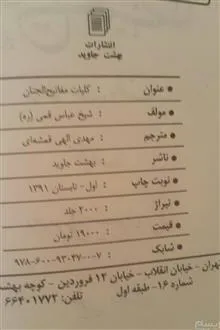 انتشارات
بهشت جاوید
● عنوان : کلیات مفاتیح‌الجنان
● مولف : شیخ عباس قمی (ره)
● مترجم : مهدی الهی قمشه‌ای
● ناشر : بهشت جاوید
● نوبت چاپ : اول - تابستان ۱۳۹۱
● تیراژ : ۲۰۰۰ جلد
● قیمت : ۱۹۰۰۰ تومان
● شابک : ۹۷۸-۶۰۰-۹۳۰۲۷-۰-۷
تهران - خیابان انقلاب - خیابان ۱۲ فروردین - کوچه بهشت
شماره ۱۶ - طبقه اول تلفن: ۶۶۴۰۱۷۷۳